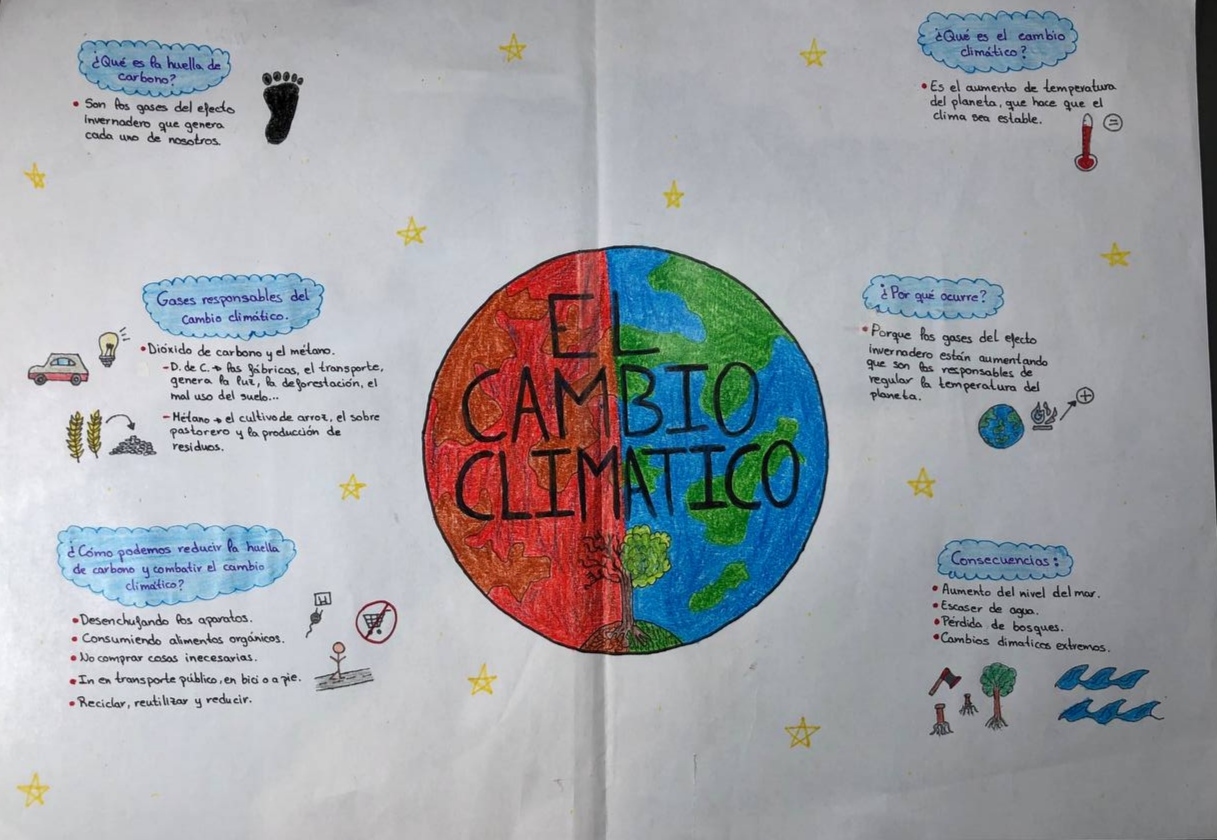 ¿Qué es la huella de
carbono?
• Son los gases del efecto
invernadero que genera
cada uno de nosotros.
¿Qué es el cambio
climático?
• Es el aumento de temperatura
del planeta, que hace que el
clima sea estable.
=
Gases responsables del
cambio climático.
• Dióxido de carbono y el métano.
- D. de C. → las fábricas, el transporte,
genera la luz, la deforestación, el
mal uso del suelo...
- Métano → el cultivo de arroz, el sobre
pastorero y la producción de
residuos.
EL
CAMBIO
CLIMATICO
¿Por qué ocurre?
• Porque los gases del efecto
invernadero están aumentando
que son los responsables de
regular la temperatura del
planeta.
+
¿Cómo podemos reducir la huella
de carbono y combatir el cambio
climático?
• Desenchufando los aparatos.
• Consumiendo alimentos orgánicos.
• No comprar cosas inecesarias.
• In en transporte público, en bici o a pie.
• Reciclar, reutilizar y reducir.
Consecuencias:
• Aumento del nivel del mar.
• Escaser de agua.
• Pérdida de bosques.
• Cambios climaticos extremos.